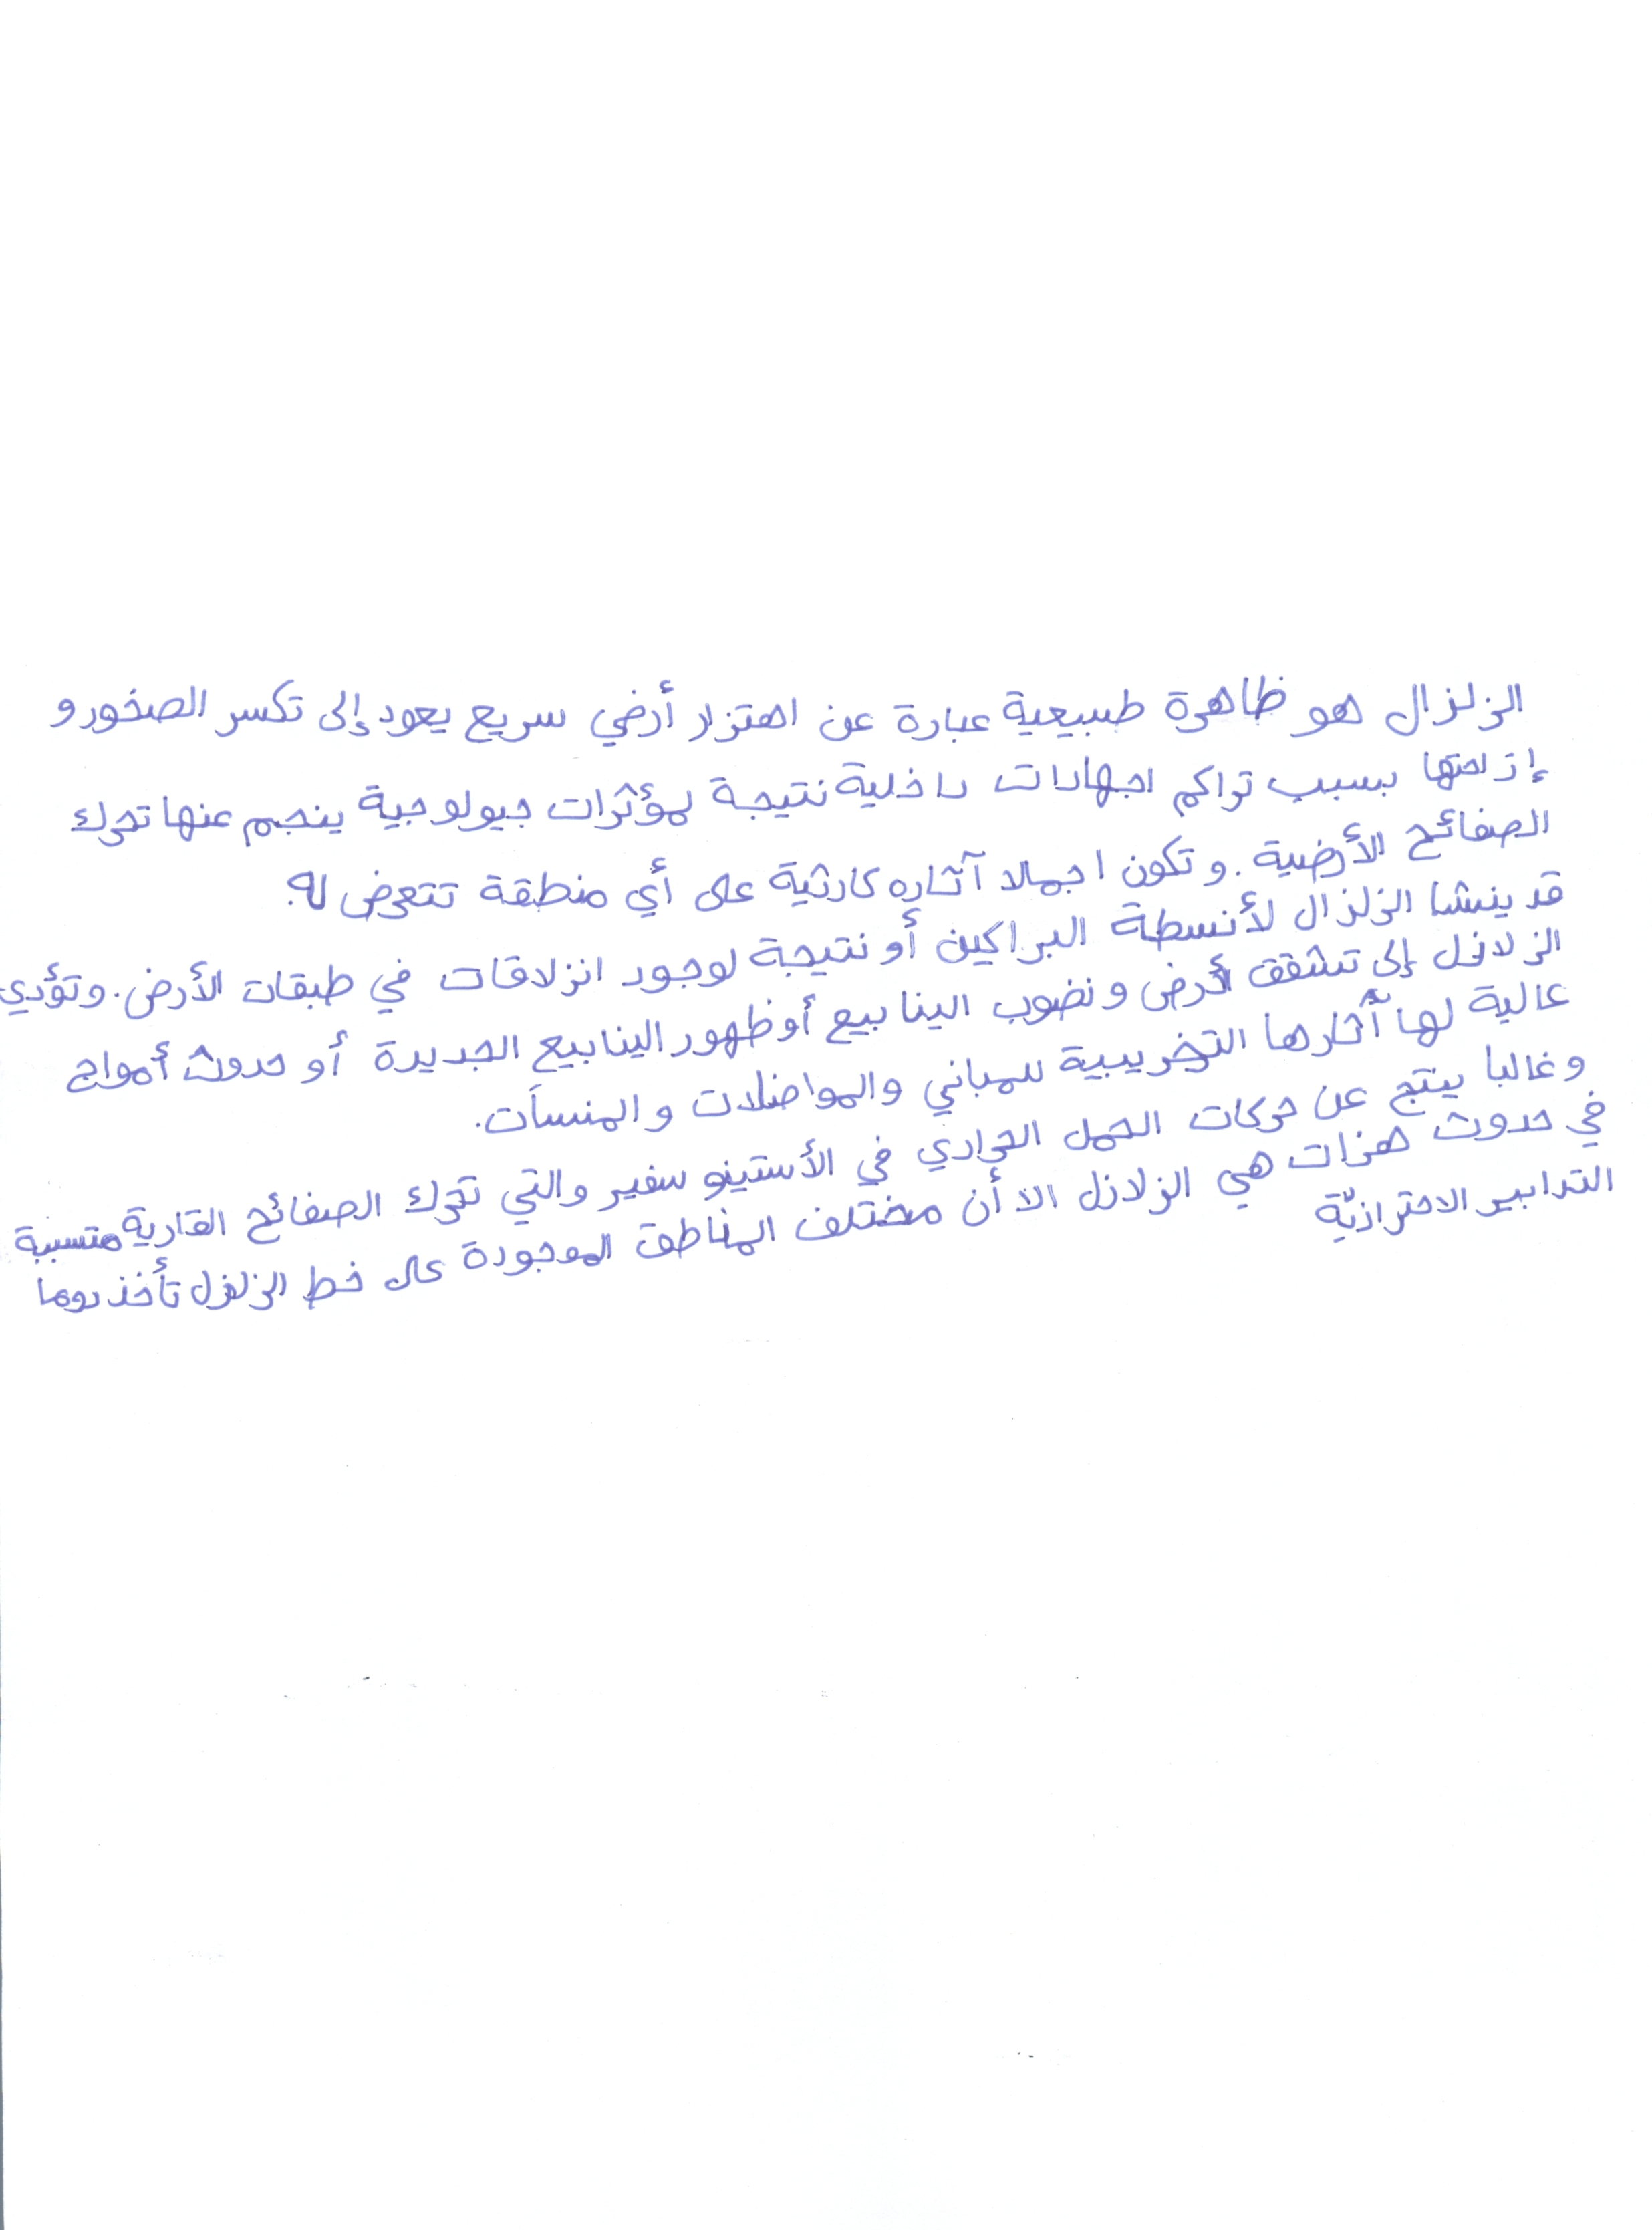 الزلزال هو ظاهرة طبيعية عبارة عن اهتزاز أرضي سريع يعود إلى تكسر الصخور و
إزاحتها بسبب تراكم اجهادات داخلية نتيجة لمؤثرات جيولوجية ينجم عنها تحرك
الصفائح الأرضية. و تكون اجمالا آثاره كارثية على أي منطقة تتعرض له.
قد ينشا الزلزال لأنسطة البراكين أو نتيجة لوجود انزلاقات في طبقات الأرض. و تؤدي
الزلازل إلى تشقق أرض و نضوب الينابيع أو ظهور الينابيع الجديدة أو حدوث أمواج
عالية لها آثارها التخريبية للمباني والمواصلات و المنسآت.
و غالبا ينتج عن حركات الحمل الحراري في الأستينو سفير والتي تحرك الصفائح القارية متسببة
في حدوث هزات هي الزلازل الا أن مختلف المناطق الموجودة على خط الزلازل تأخذ دوما
التدابير الاحترازيّة